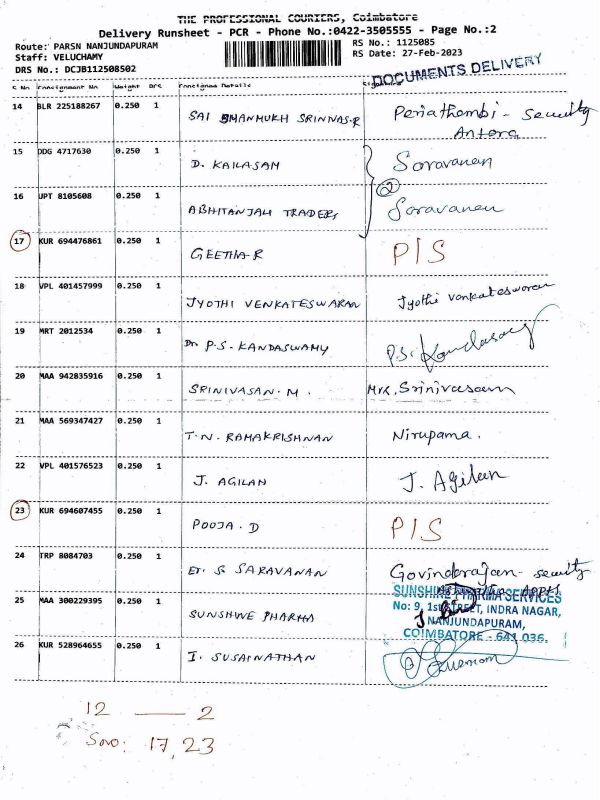 THE PROFESSIONAL COURIERS, Coimbatore
Delivery Runsheet - PCR - Phone No.:0422-3505555 - Page No.:2
Route: PARSN NANJUNDAPURAM
RS No.: 1125085
Staff: VELUCHAMY
RS Date: 27-Feb-2023
DRS No.: DCJB112508502
DOCUMENTS DELIVERY
S No Consignment No Weight Consignee Details
14 BLR 225188267 0.250 1 SAI SHANMUKH SRINIVAS.R Periathambi - security
Antora
15 DDG 4717630 0.250 1 D. KAILASAM Saravanan
16 UPT 8105608 0.250 1 ABHITANJALI TRADERS ② Saravanan
17 KUR 694476861 0.250 1 GEETHA-R P/S
18 VPL 401457999 0.250 1 JYOTHI VENKATESWARAN Jyothi Venkateswaran
19 MRT 2012534 0.250 1 Dr P.S-KANDASWAMY P.S. Kandasamy
20 MAA 942835916 0.250 1 SRINIVASAN.M. Mrs. Srinivasan
21 MAA 569347427 0.250 1 T.N. RAMAKRISHNAN Nirupama.
22 VPL 401576523 0.250 1 J. AGILAN J. Agilan
23 KUR 694607455 0.250 1 POOJA.D P/S
24 TRP 8084703 0.250 1 Er. S SARAVANAN Govindarajan - security
25 MAA 300229395 0.250 1 SUNSHINE PHARMA
SUNSHINE PHARMA SERVICES
No: 9, 1st STREET, INDRA NAGAR,
NANJUNDAPURAM,
COIMBATORE - 641 036.
26 KUR 528964655 0.250 1 I. SUSAINATHAN
12 — 2
Sno: 17, 23